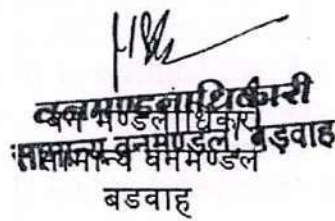 वनमण्डलाधिकारी
वन मण्डलाधिकारी
सामान्य वनमण्डल, बड़वाह
सामान्य वनमण्डल
बडवाह